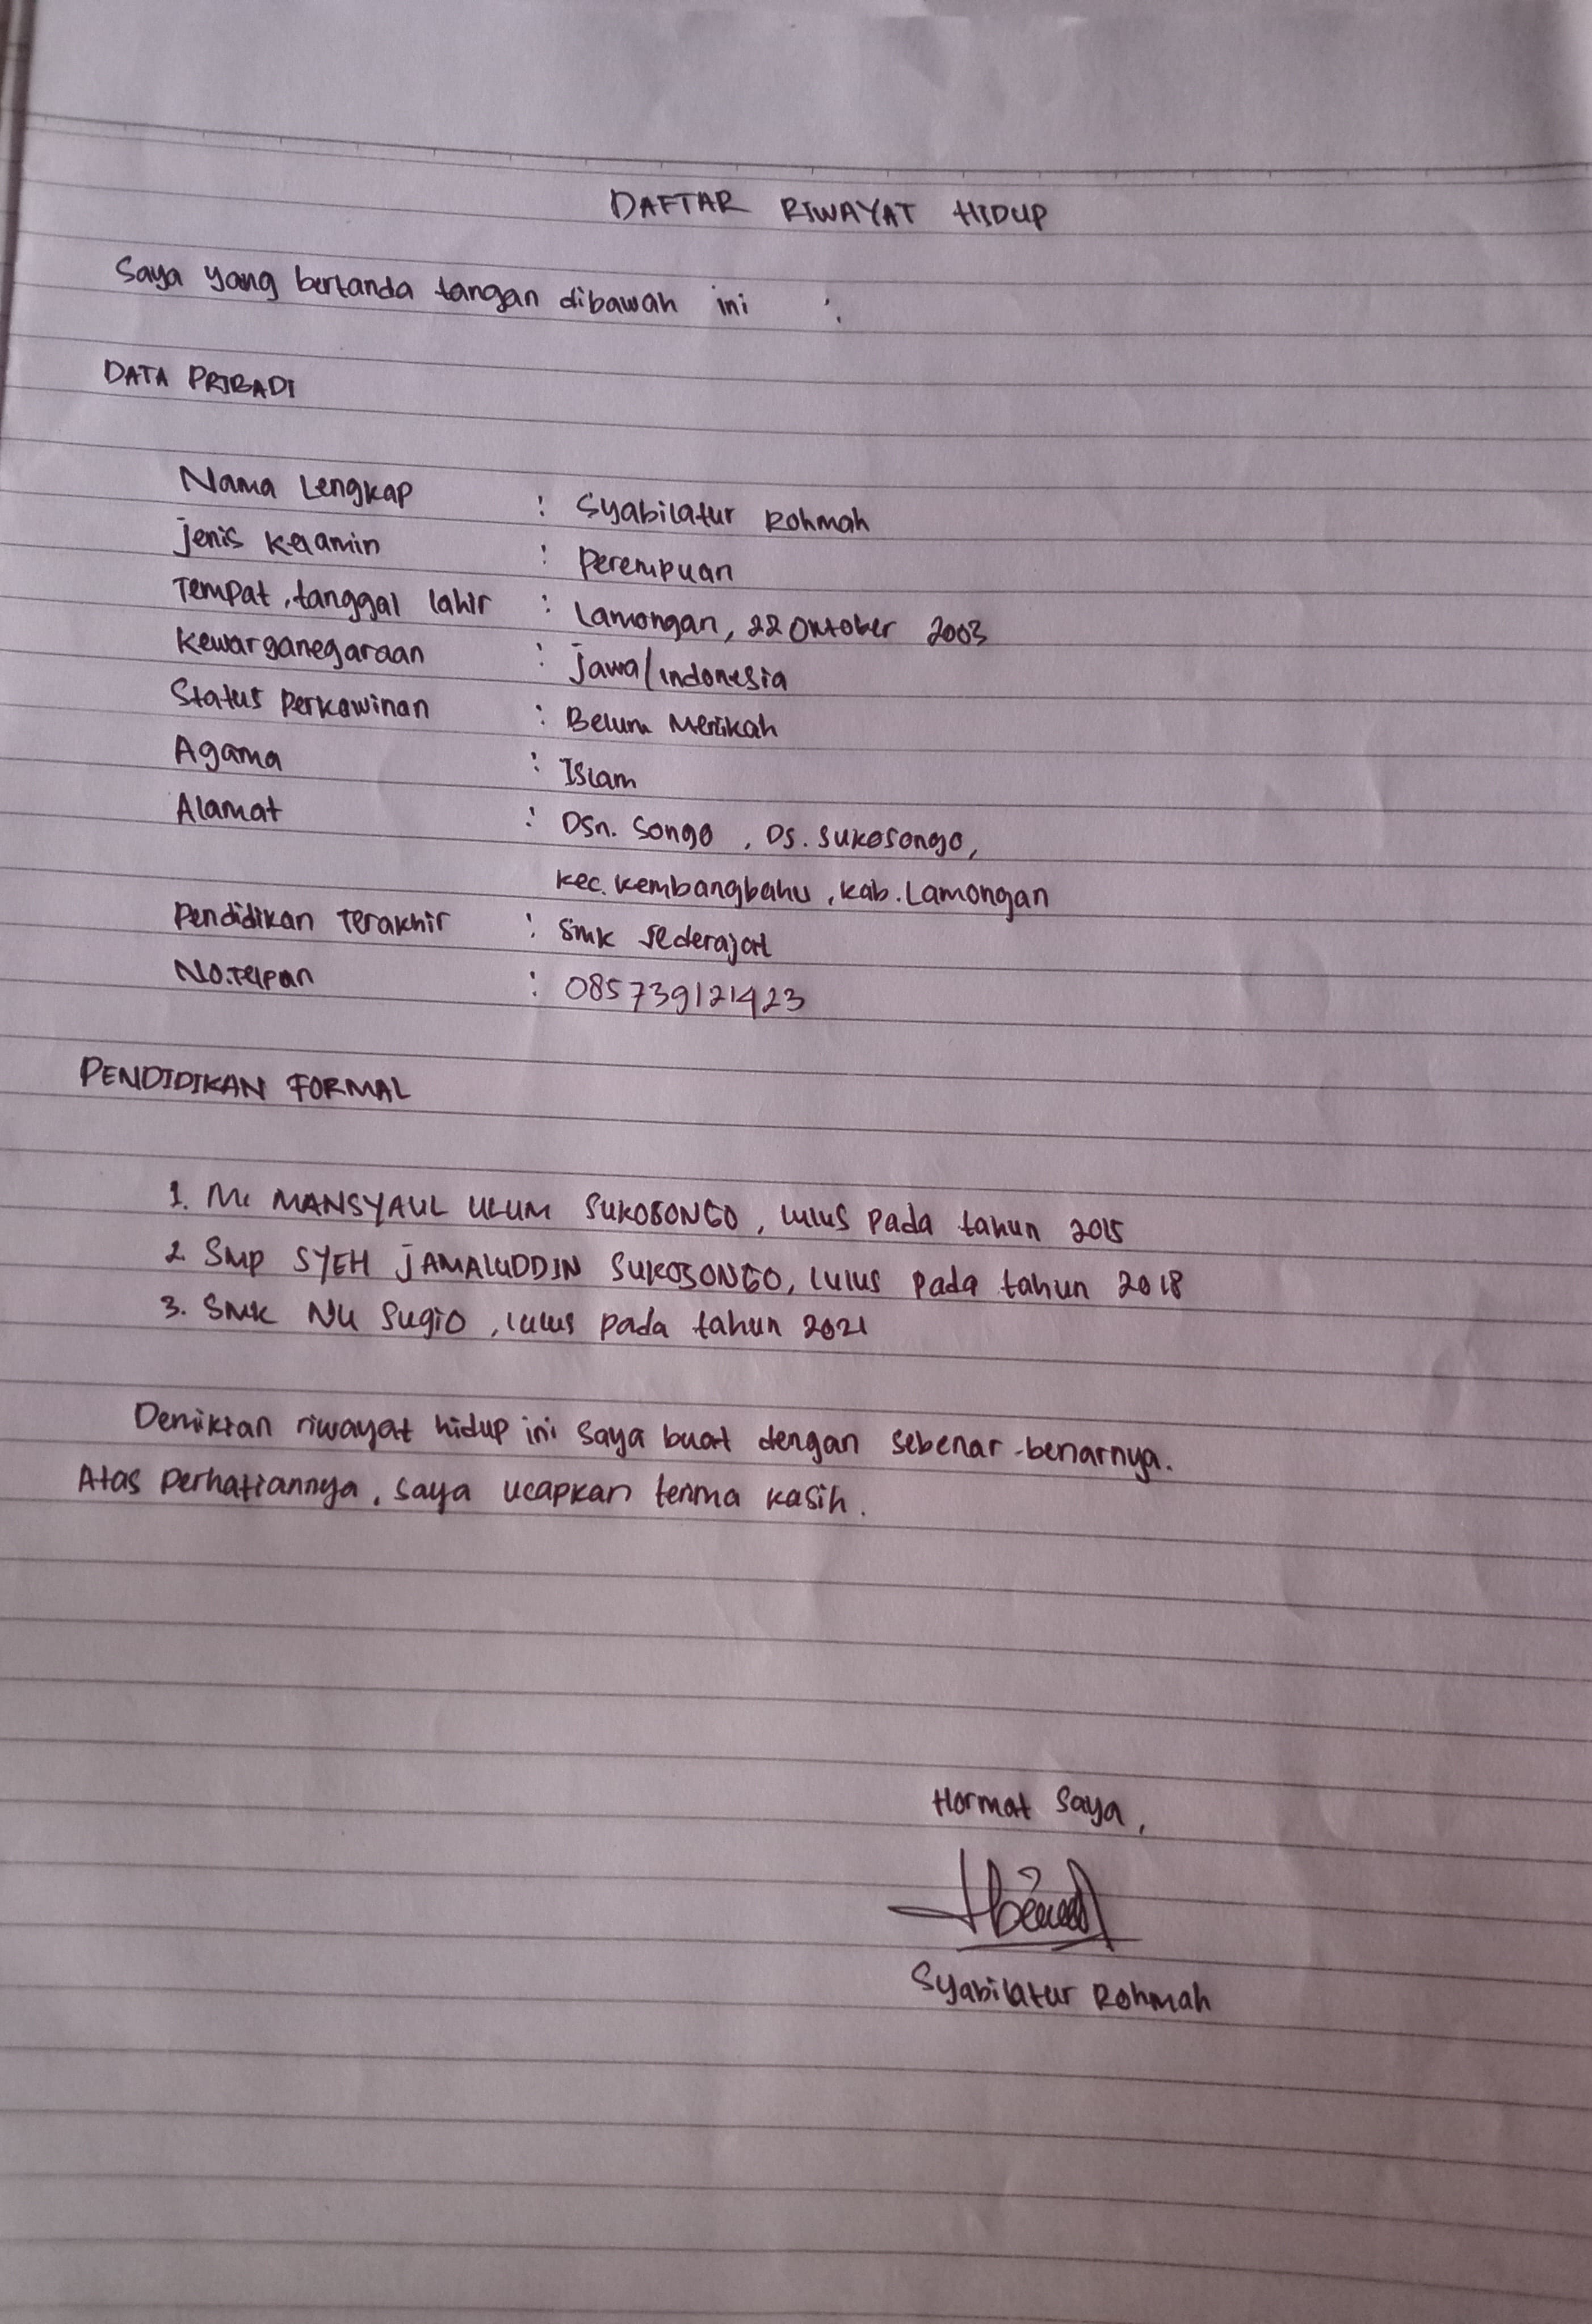 DAFTAR RIWAYAT HIDUP
Saya yang bertanda tangan dibawah ini :
DATA PRIBADI
Nama Lengkap : Syabilatur Rohmah
Jenis Kelamin : Perempuan
Tempat, tanggal lahir : Lamongan, 22 Oktober 2003
Kewarganegaraan : Jawa/Indonesia
Status Perkawinan : Belum Menikah
Agama : Islam
Alamat : Dsn. Songo, Ds. Sukosongo,
Kec. Kembangbahu, Kab. Lamongan
Pendidikan Terakhir : SMK Sederajat
No. Telpan : 085739121423
PENDIDIKAN FORMAL
1. MI MANSYAUL ULUM SUKOSONGO, lulus pada tahun 2015
2. SMP SYEH JAMALUDDIN SUKOSONGO, lulus pada tahun 2018
3. SMK NU Sugio, lulus pada tahun 2021
Demikian riwayat hidup ini saya buat dengan sebenar-benarnya.
Atas perhatiannya, saya ucapkan terima kasih.
Hormat Saya,
Syabilatur Rohmah